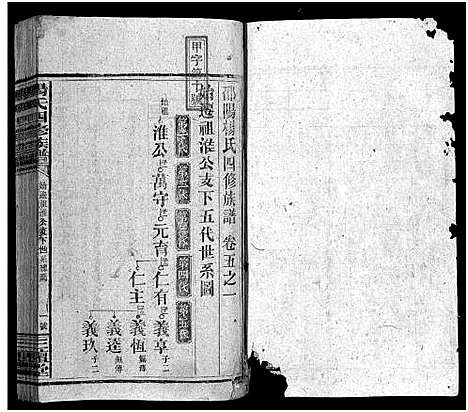 邵陽楊氏四修族譜 卷五之一
始遷祖淮公支下五代世系圖
甲字第十號
第一代
第二代
第三代
第四代
第五代
始祖 淮公
萬守
元育
仁有
義享 子二
義恆 無傳
仁主
義逵 無傳
義玖 子二
楊氏四修族譜
始遷祖淮公支下世系
一號